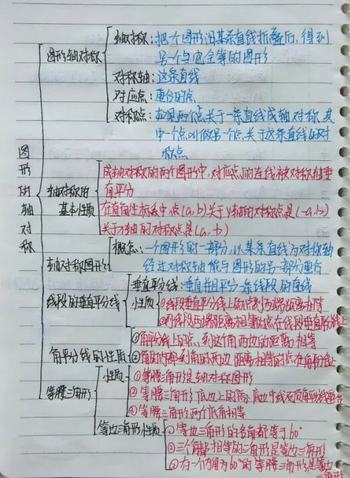 图形的轴对称
图形轴对称
轴对称：把一个图形沿某条直线折叠后，得到
另一个与它全等的图形
对称轴：这条直线
对应点：重合的点
对称点：如果两个点关于一条直线成轴对称，其
中一个点叫做另一个点关于这条直线的对
称点
轴对称的
基本性质
成轴对称的两个图形中，对应点的连线被对称轴垂
直平分
在直角坐标系中点(a,b)关于y轴的对称点是(-a,b)
关于x轴的对称点是(a,-b)
轴对称图形
概念：一个图形的一部分，以某条直线为对称轴
经过对称轴能与图形的另一部分重合
线段的垂直平分线
垂直平分线：垂直并且平分一条线段的直线
性质
①线段垂直平分线上的点到两端距离相等
②到线段两端距离相等的点在线段垂直平分线上
角平分线的性质
①角平分线上的点，到这个角两边的距离相等
②角的内部到角的两边距离相等的点在角平分线上
等腰三角形
性质
①等腰三角形是轴对称图形
②等腰三角形底边上的高、中线
③等腰三角形两个底角相等
等边三角形性质
①等边三角形的各角都等于60°
②三个角都相等的三角形是等边三角形
③有一个角为60°的等腰三角形是等边
三角形